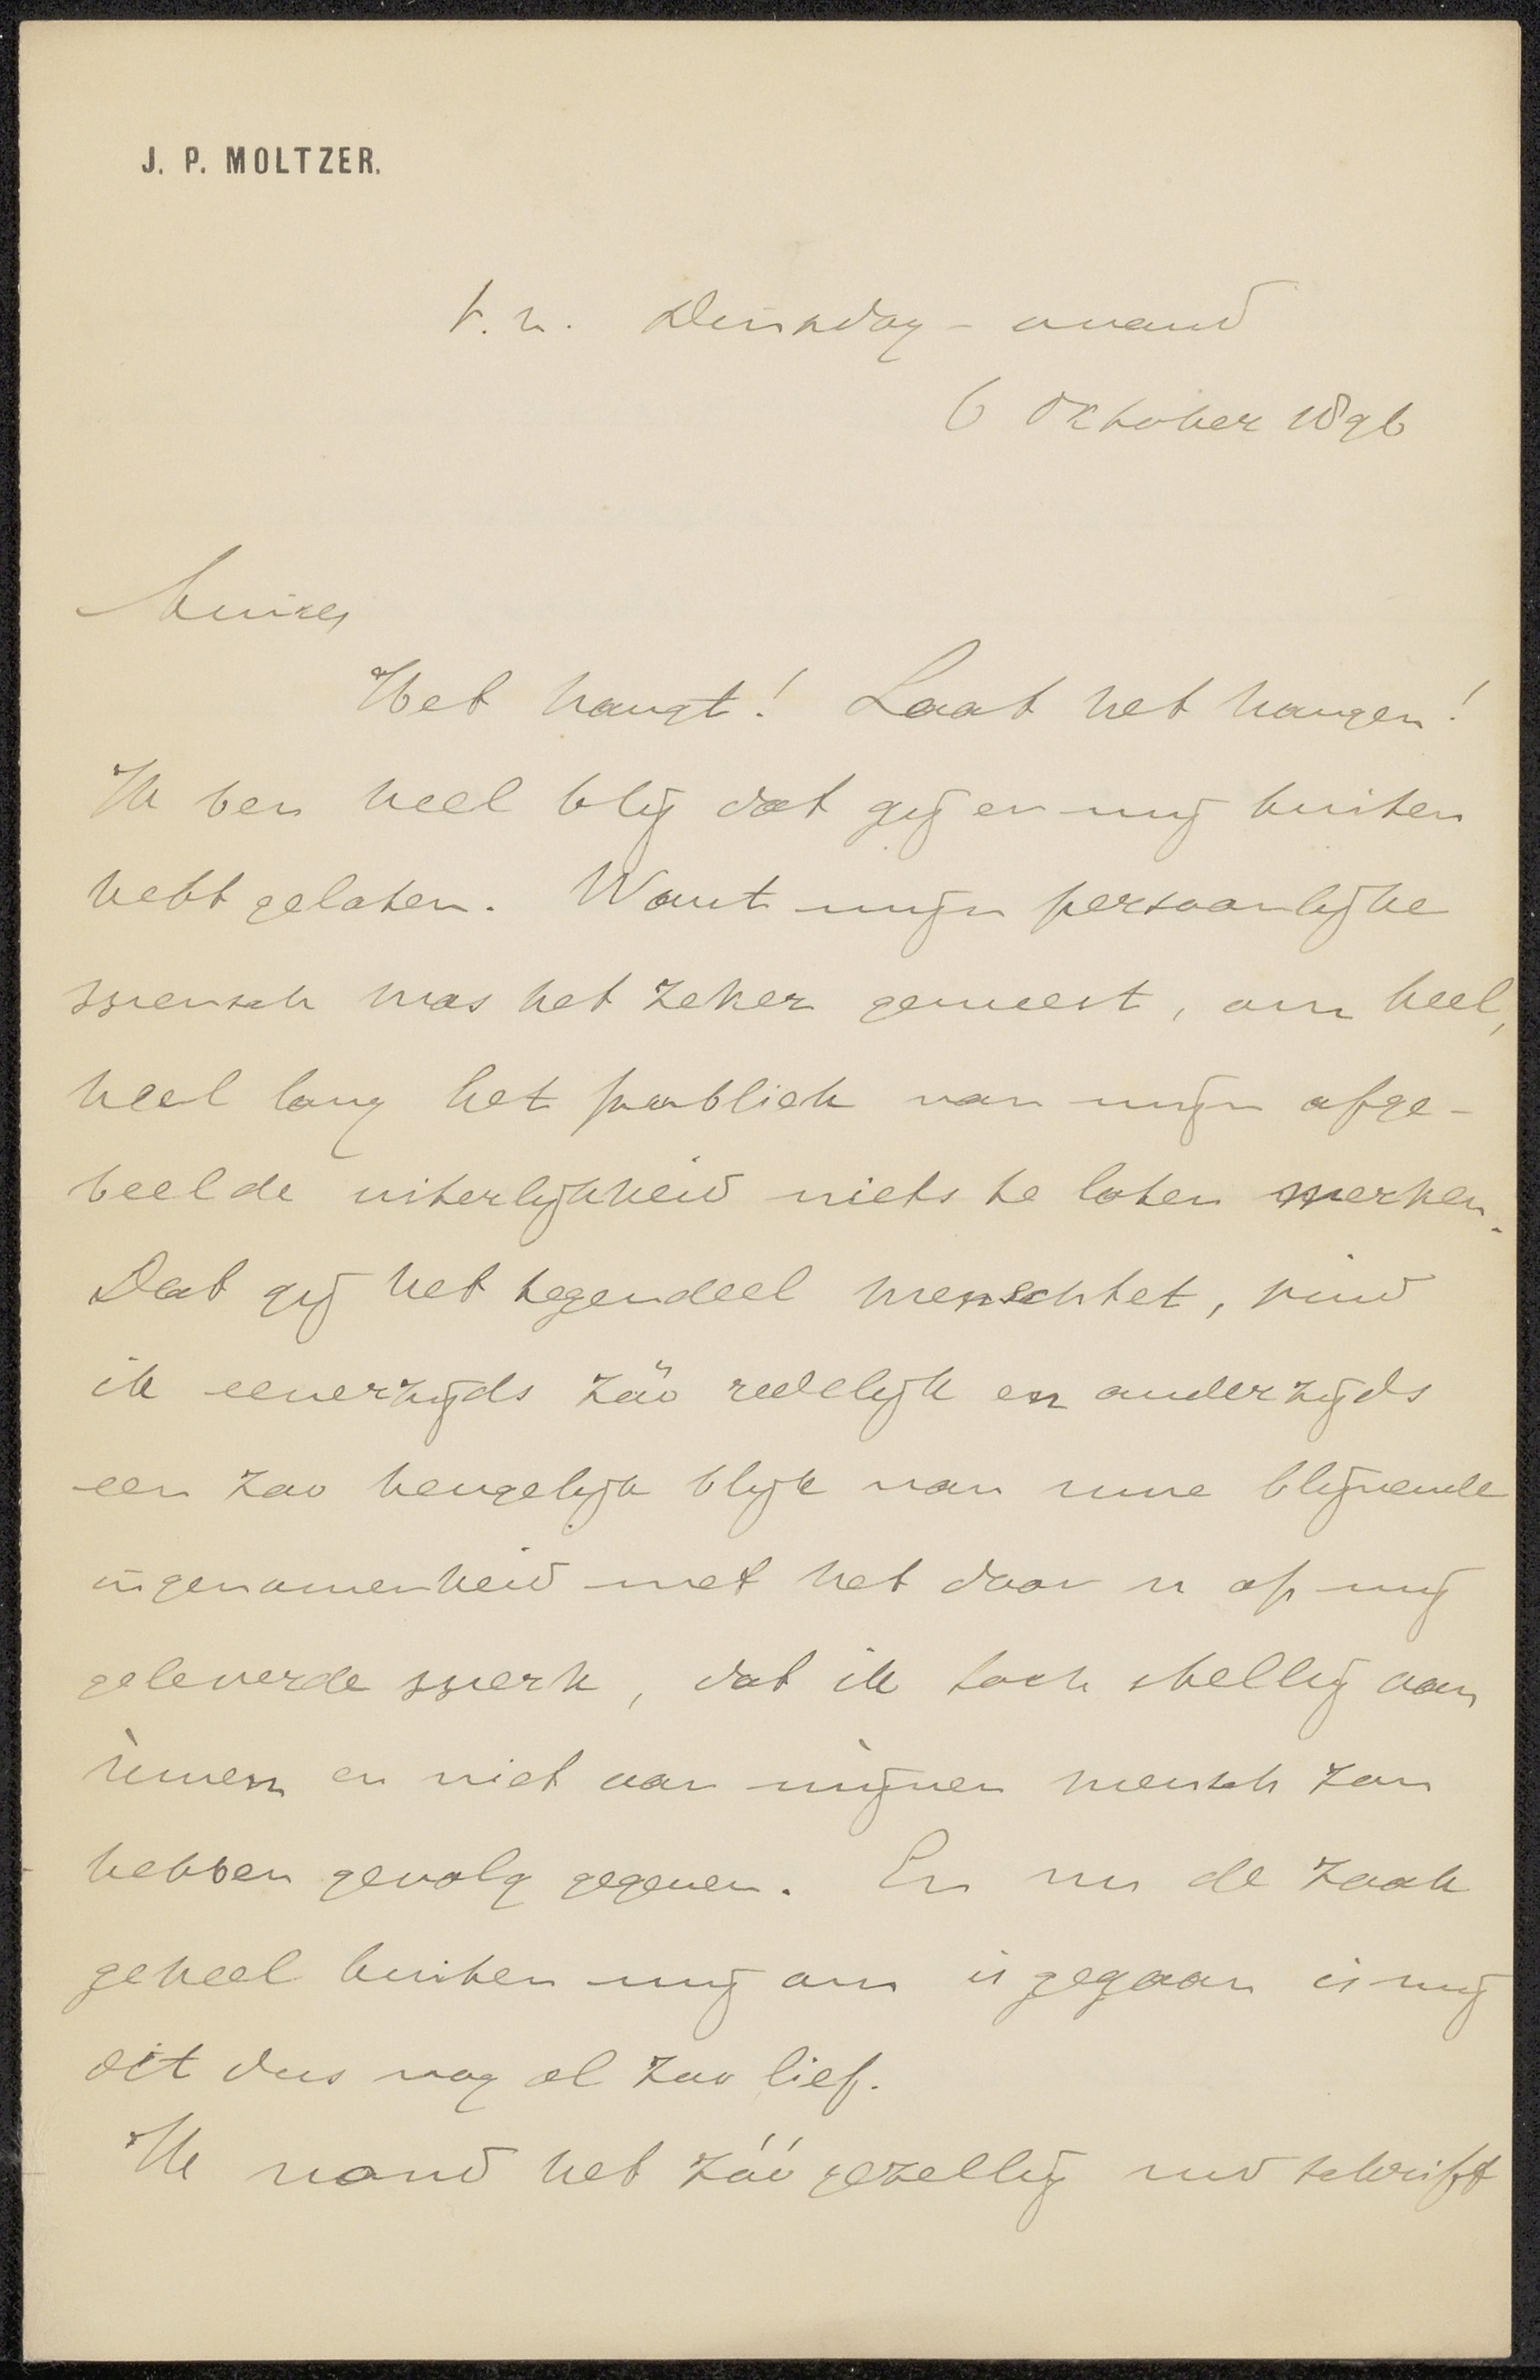 J. P. MOLTZER.
t. h. Dinsdag - avond
6 Oktober 1896
Amice,
Het hangt! Laat het hangen!
Ik ben heel blij dat gij er mij buiten
hebt gelaten. Want mijn persoonlijke
wensch was het zeker geweest, om heel,
heel lang het publiek van mijn afge-
beelde uiterlijkheid niets te laten merken.
Dat gij het tegendeel wenschtet, vind
ik eenerzijds zóó redelijk en anderzijds
een zoo heugelijk blijk van uwe blijvende
ingenomenheid met het door u op mij
geleverde werk, dat ik toch stellig aan
ùwen en niet aan mìjnen wensch zou
hebben gevolg gegeven. En nu de zaak
geheel buiten mij om is gegaan is mij
dit dus nog al zoo lief.
Ik vond het zóó gezellig uw schrift